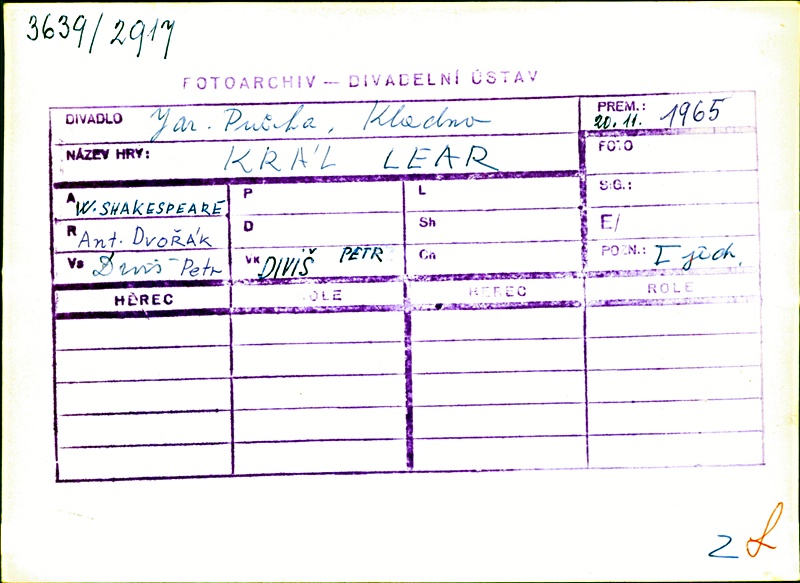 3639/2917
FOTOARCHIV — DIVADELNÍ ÚSTAV
DIVADLO Jar. Průcha, Kladno
PREM.: 20.11. 1965
NÁZEV HRY: KRÁL LEAR
FOTO
A W. SHAKESPEARE P L SIG.:
R Ant. DVOŘÁK D Sh E/
Vs Diviš Petr VK DIVIŠ PETR Ch POZN.:
HEREC ROLE HEREC ROLE
2